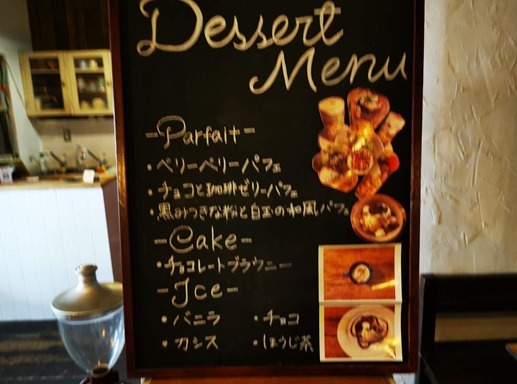 Dessert
Menu
-Parfait-
・ベリーベリーパフェ
・チョコと珈琲ゼリーパフェ
・黒みつきな粉と白玉の和風パフェ
-Cake-
・チョコレートブラウニー
-Ice-
・バニラ ・チョコ
・カシス ・ほうじ茶